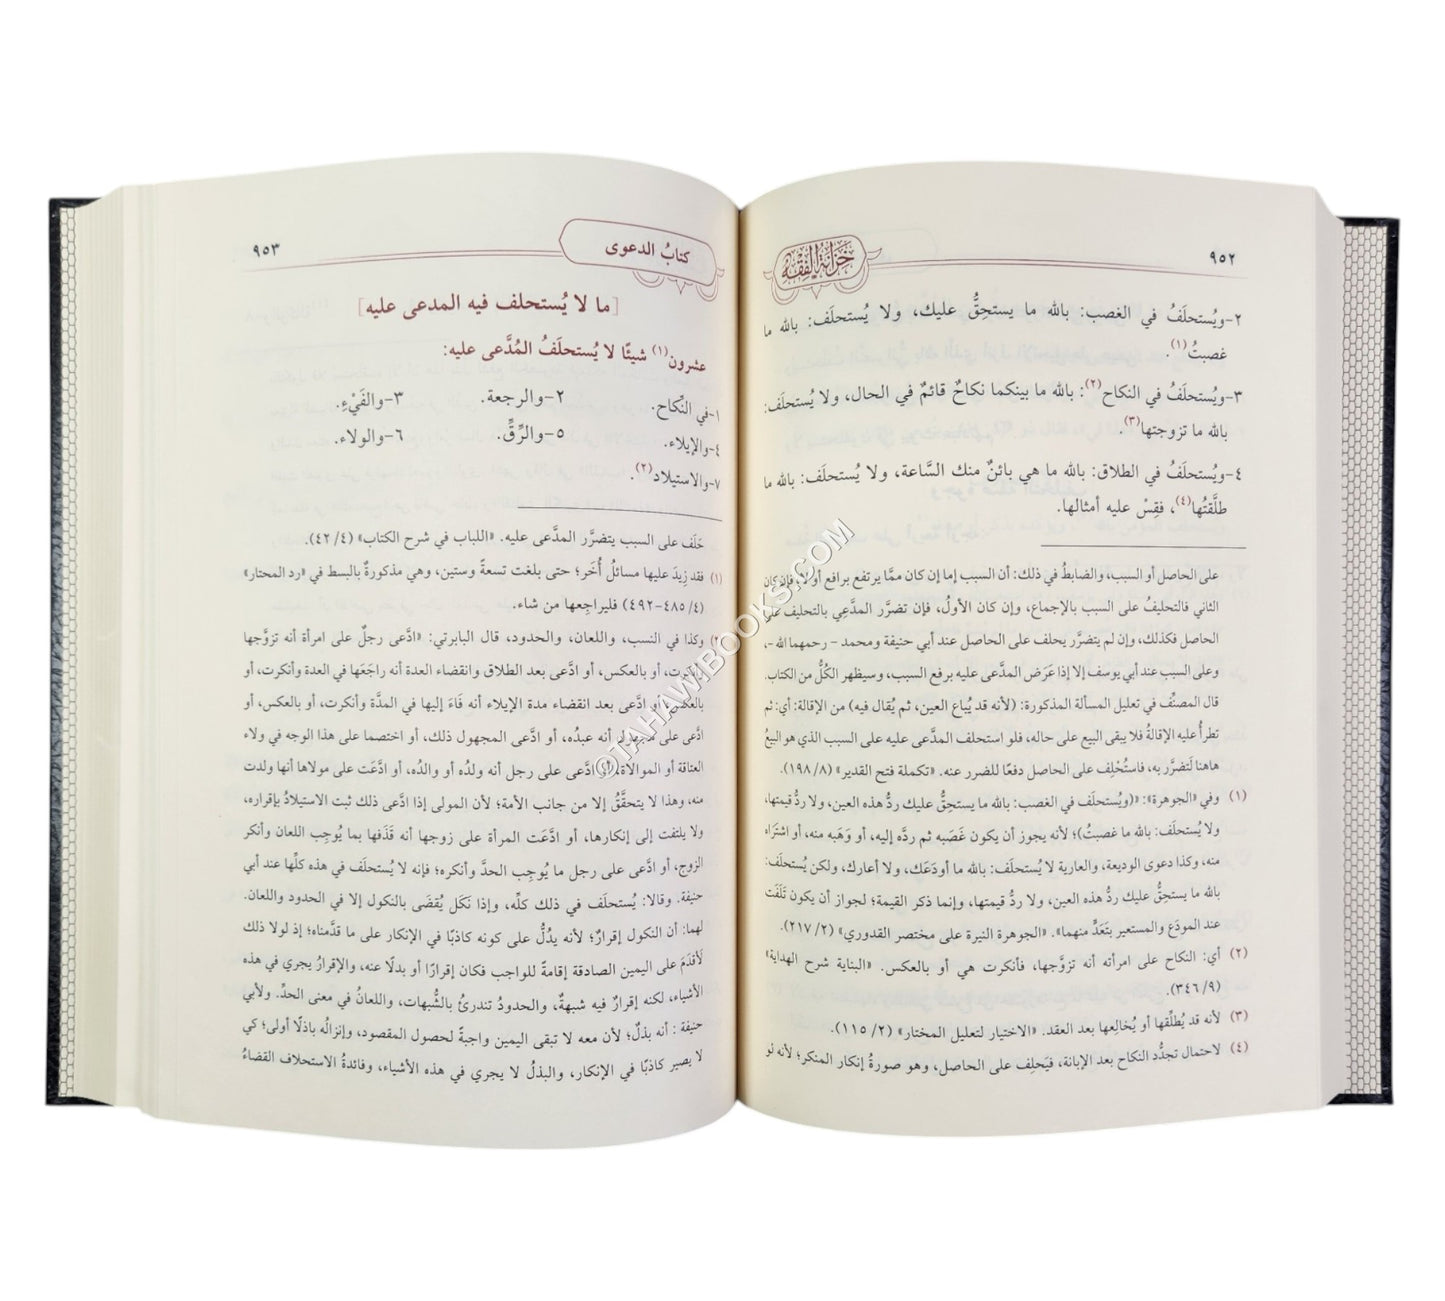 ٩٥٢
خزانة الفقه
٢-ويُستحلَفُ في الغصب: بالله ما يستحِقُّ عليك، ولا يُستحلَف: بالله ما
غصبتُ(١).
٣-ويُستحلَفُ في النكاح(٢): بالله ما بينكما نكاحٌ قائمٌ في الحال، ولا يُستحلَف:
بالله ما تزوجتها(٣).
٤-ويُستحلَفُ في الطلاق: بالله ما هي بائنٌ منك السَّاعة، ولا يُستحلَف: بالله ما
طلَّقتُها(٤)، فقِسْ عليه أمثالها.
على الحاصل أو السبب، والضابطُ في ذلك: أن السبب إما إن كان ممَّا يرتفع برافع أو لا، فإن كان
الثاني فالتحليفُ على السبب بالإجماع، وإن كان الأولُ، فإن تضرَّر المدَّعِي بالتحليف على
الحاصل فكذلك، وإن لم يتضرَّر يحلف على الحاصل عند أبي حنيفة ومحمد – رحمهما الله –،
وعلى السبب عند أبي يوسف إلا إذا عَرَض المدَّعى عليه برفع السبب، وسيظهر الكُلُّ من الكتاب.
قال المصنِّف في تعليل المسألة المذكورة: (لأنه قد يُباع العين، ثم يُقال فيه) من الإقالة: أي: ثم
تطرأُ عليه الإقالةُ فلا يبقى البيع على حاله، فلو استحلف المدَّعى عليه على السبب الذي هو البيعُ
هاهنا لَتضرَّر به، فاستُحْلِف على الحاصل دفعًا للضرر عنه. «تكملة فتح القدير» (١٩٨/٨).
(١) وفي «الجوهرة»: «(ويُستحلَف في الغصب: بالله ما يستحِقُّ عليك ردُّ هذه العين، ولا ردُّ قيمتها،
ولا يُستحلَف: بالله ما غصبتُ)؛ لأنه يجوز أن يكون غَصَبه ثم ردَّه إليه، أو وَهَبه منه، أو اشتَراه
منه، وكذا دعوى الوديعة، والعارية لا يُستحلَف: بالله ما أودَعَك، ولا أعارك، ولكن يُستحلَف:
بالله ما يستحِقُّ عليك ردُّ هذه العين، ولا ردُّ قيمتها، وإنما ذكر القيمة؛ لجواز أن يكون تَلَفَت
عند المودَع والمستعير بتَعَدٍّ منهما». «الجوهرة النيرة على مختصر القدوري» (٢/ ٢١٧).
(٢) أي: النكاح على امرأته أنه تزوَّجها، فأنكرت هي أو بالعكس. «البناية شرح الهداية»
(٣٤٦/٩).
(٣) لأنه قد يُطلِّقها أو يُخالِعها بعد العقد. «الاختيار لتعليل المختار» (٢/ ١١٥).
(٤) لاحتمال تجدُّد النكاح بعد الإبانة، فيَحلِف على الحاصل، وهو صورةُ إنكار المنكر؛ لأنه لو
كتابُ الدعوى
٩٥٣
[ما لا يُستحلف فيه المدعى عليه]
عشرون(١) شيئًا لا يُستحلَفُ المُدَّعى عليه:
١-في النِّكاح. ٢-والرجعة. ٣-والفَيْءِ.
٤-والإيلاء. ٥-والرِّقِّ. ٦-والولاء.
٧-والاستيلاد(٢).
حَلَف على السبب يتضرَّر المدَّعى عليه. «اللباب في شرح الكتاب» (٤/ ٤٢).
(١) فقد زِيدَ عليها مسائل أُخَر؛ حتى بلغت تسعةً وستين، وهي مذكورةٌ بالبسط في «رد المحتار»
(٤/ ٤٨٥-٤٩٢) فليراجِعها من شاء.
(٢) وكذا في النسب، واللعان، والحدود، قال البابرتي: «ادَّعى رجلٌ على امرأة أنه تزوَّجها
وأنكرت، أو بالعكس، أو ادَّعى بعد الطلاق وانقضاء العدة أنه راجَعها في العدة وأنكرت، أو
بالعكس، أو ادَّعى بعد انقضاء مدة الإيلاء أنه فَاءَ إليها في المدَّة وأنكرت، أو بالعكس، أو
ادَّعى على مجهول أنه عبدُه، أو ادَّعى المجهول ذلك، أو اختصما على هذا الوجه في ولاء
العتاقة أو الموالاة، أو ادَّعى على رجل أنه ولدُه أو والدُه، أو ادَّعَت على مولاها أنها ولدت
منه، وهذا لا يتحقَّقُ إلا من جانب الأمة؛ لأن المولى إذا ادَّعى ذلك ثبت الاستيلادُ بإقراره،
ولا يلتفت إلى إنكارها، أو ادَّعَت المرأة على زوجها أنه قَذَفها بما يُوجِب اللعان وأنكر
الزوج، أو ادَّعى على رجل ما يُوجِب الحدَّ وأنكره؛ فإنه لا يُستحلَف في هذه كلِّها عند أبي
حنيفة. وقالا: يُستحلَف في ذلك كلِّه، وإذا نَكَل يُقضَى بالنكول إلا في الحدود واللعان.
لهما: أن النكول إقرارٌ؛ لأنه يدُلُّ على كونه كاذبًا في الإنكار على ما قدَّمناه؛ إذ لولا ذلك
لَأقدَمَ على اليمين الصادقة إقامةً للواجب فكان إقرارًا أو بدلًا عنه، والإقرارُ يجري في هذه
الأشياء، لكنه إقرارٌ فيه شبهةٌ، والحدودُ تندرئُ بالشُّبهات، واللعانُ في معنى الحدِّ. ولأبي
حنيفة : أنه بذلٌ؛ لأن معه لا تبقى اليمين واجبةً لحصول المقصود، وإنزالُه باذلًا أولى؛ كي
لا يصير كاذبًا في الإنكار، والبذلُ لا يجري في هذه الأشياء، وفائدةُ الاستحلاف القضاءُ
©TAHAWIBOOKS.COM